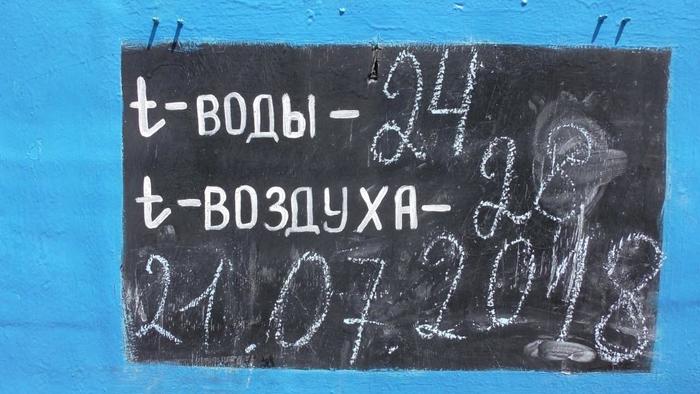 t-ВОДЫ-24
t-ВОЗДУХА-26
21.07.2018